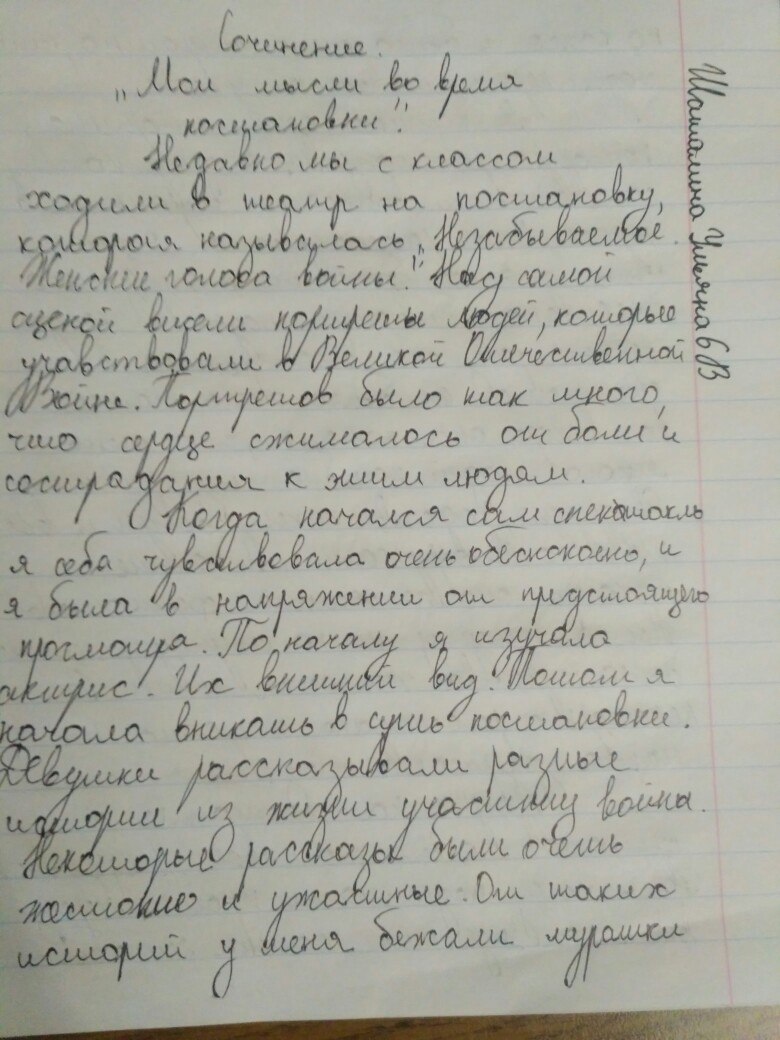 Сочинение.
„Мои мысли во время
постановки".
Недавно мы с классом
ходили в театр на постановку,
которая называлась „Незабываемое.
Женские голоса войны." Над самой
сценой висели портреты людей, которые
учавствовали в Великой Отечественной
Войне. Портретов было так много,
что сердце сжималось от боли и
сострадания к этим людям.
Когда начался сам спектакль
я себя чувствовала очень обеспокоено, и
я была в напряжении от предстоящего
просмотра. По началу я изучала
актрис. Их внешний вид. Потом я
начала вникать в суть постановки.
Девушки рассказывали разные
истории из жизни участниц войны.
Некоторые рассказы были очень
жестокие и ужастные. От таких
историй у меня бежали мурашки
Шаталина Ульяна 6В